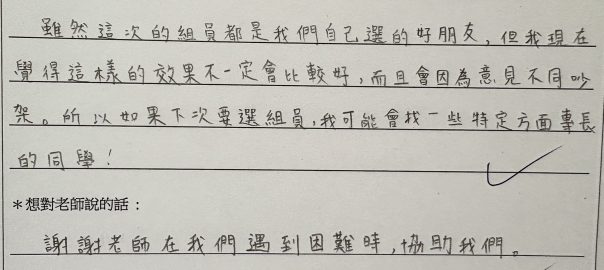 雖然這次的組員都是我們自己選的好朋友，但我現在
覺得這樣的效果不一定會比較好，而且會因為意見不同吵
架。所以如果下次要選組員，我可能會找一些特定方面專長
的同學！
＊想對老師說的話：
謝謝老師在我們遇到困難時，協助我們。